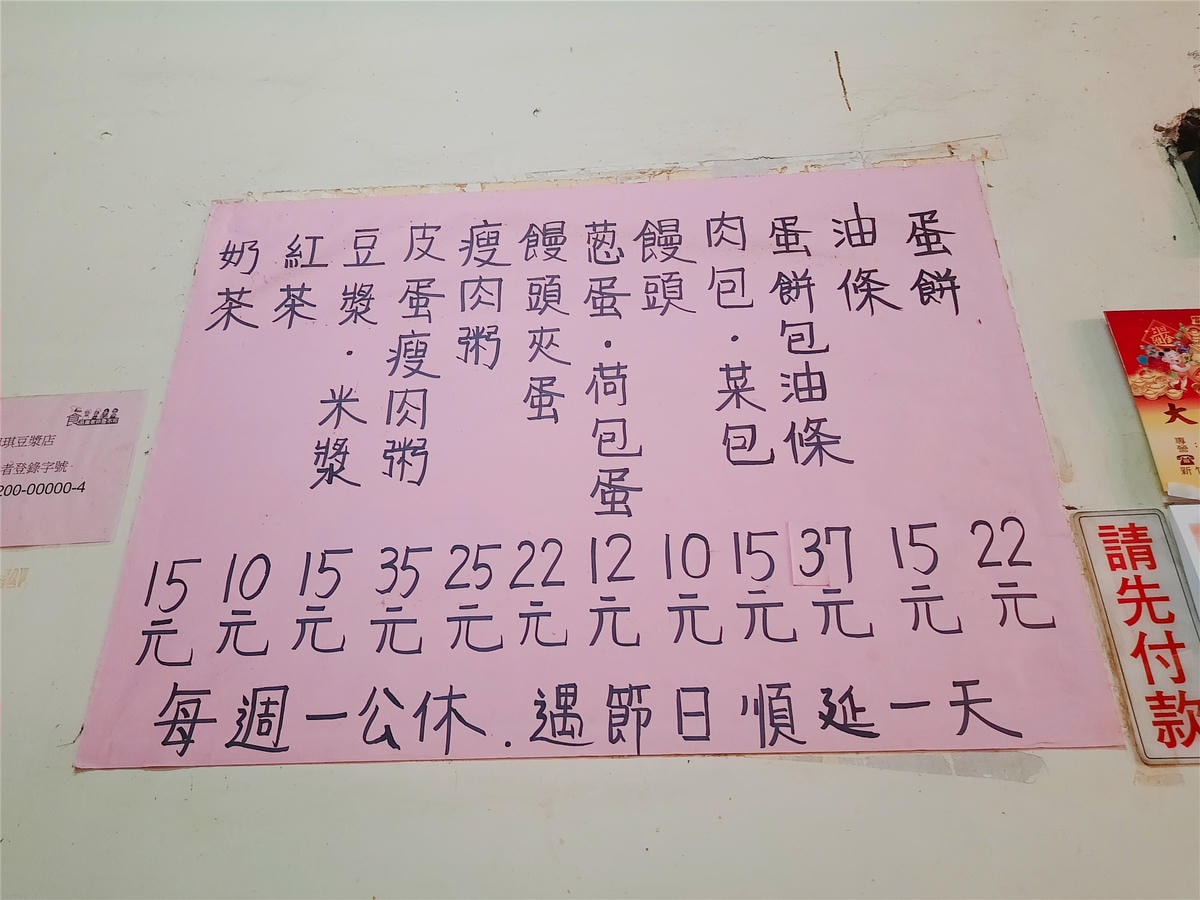 蛋餅 22元
油條 15元
蛋餅包油條 37元
肉包·菜包 15元
饅頭 10元
蔥蛋·荷包蛋 12元
饅頭夾蛋 22元
瘦肉粥 25元
皮蛋瘦肉粥 35元
豆漿·米漿 15元
紅茶 10元
奶茶 15元
每週一公休.遇節日順延一天
請先付款
琪豆漿店
者登錄字號
200-00000-4
大